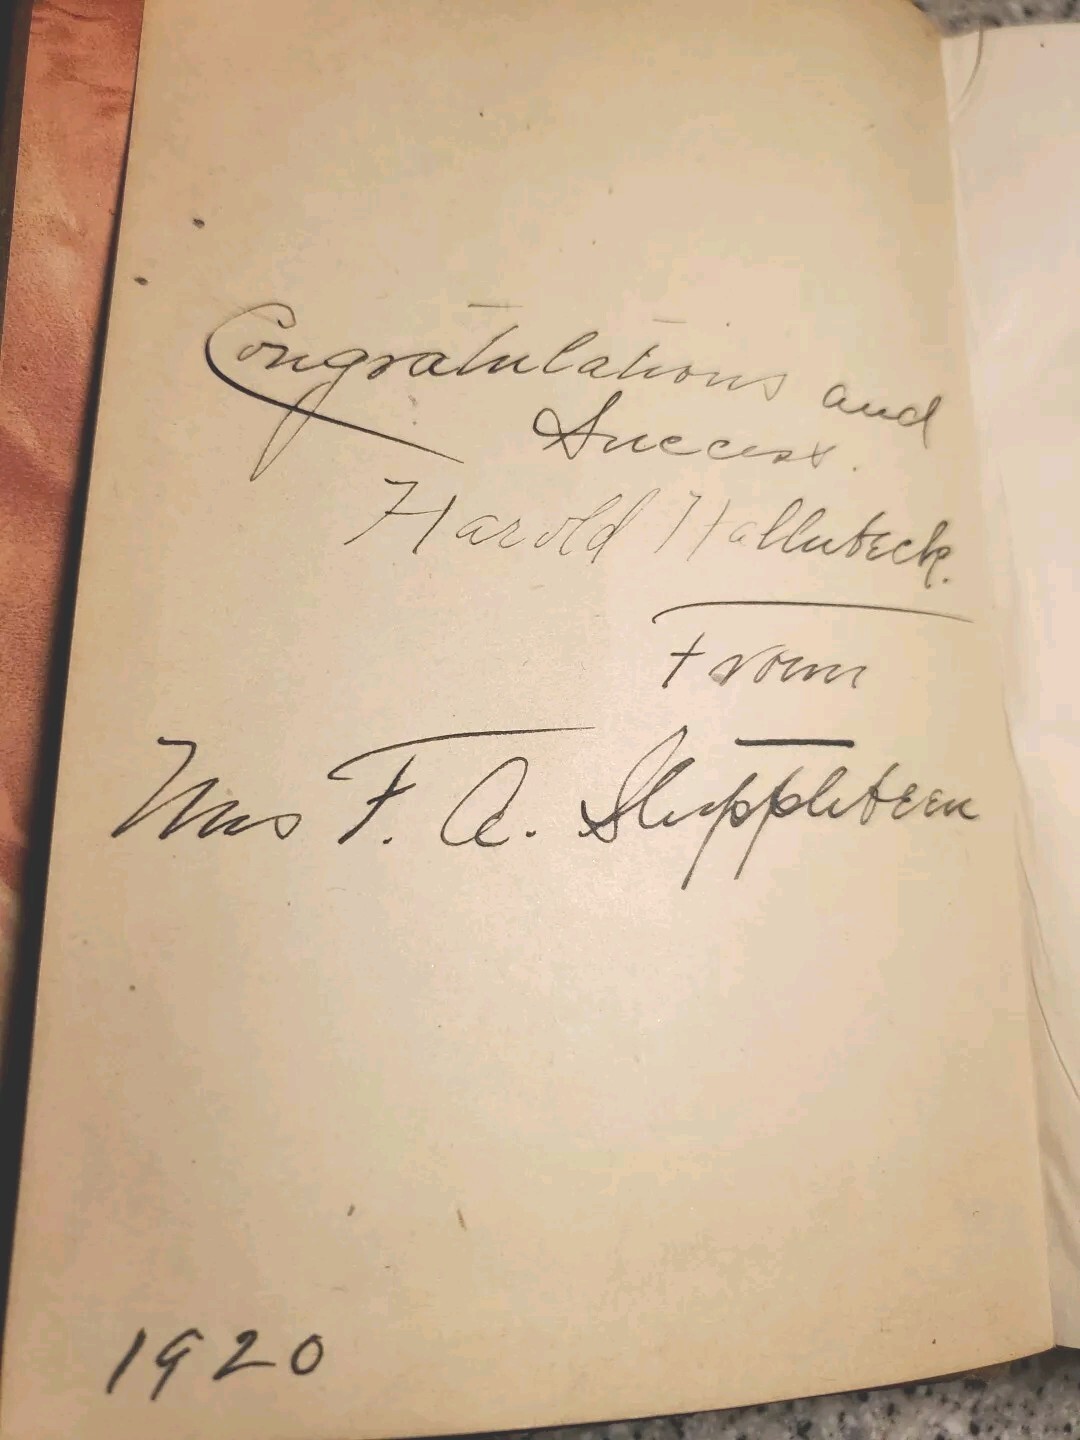 Congratulations and
Success.
Harold Hallubeck.
From
Mrs F. A.
1920